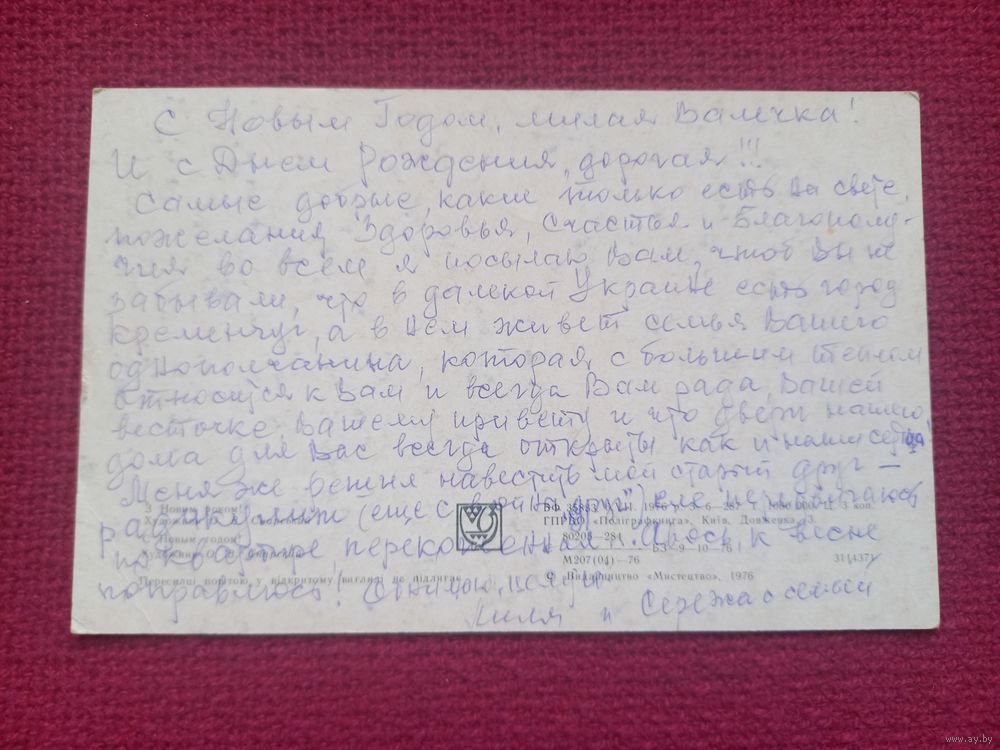 С Новым Годом, милая Валечка!
И с Днем Рождения, дорогая!!!
Самые добрые, какие только есть на свете,
пожелания Здоровья, Счастья и Благополу-
чия во всем я посылаю Вам, чтоб Вы не
забывали, что в далекой Украине есть город
Кременчуг, а в нем живет семья Вашего
однополчанина, которая с большим теплом
относится к Вам и всегда Вам рада, Вашей
весточке, Вашему привету и что двери нашего
дома для Вас всегда открыты как и наши сердца!
Меня же решил навестить мой старый друг —
радикулит (еще с войны "друг")
З Новим роком!
Художник
по квартире, перекошенная. Авось к весне
поправлюсь! Обнимаем, целуем
Миля и Сережа с семьей
С Новым годом!
Художник О.
Пересилці поштою у відкритому вигляді не підлягає
БФ
1976 р.
Ц. 3 коп.
ГПРВО «Поліграфкнига», Київ, Довженка, 3.
80205—284
БЗ—9—10—76
М207(04)—76
31(437)
© Видавництво «Мистецтво», 1976
www.ay.by